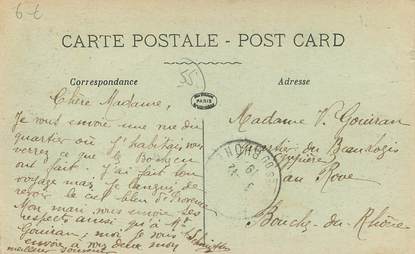 6-E
55
CARTE POSTALE - POST CARD
Correspondance
Adresse
PARIS
Chère Madame,
Je vous envoie une vue du
quartier où j'habitais vous
verrez ce que les
ont fait. J'ai fait bon
voyage mais je languis de
revoir le ciel bleu de Provence
Mon mari vous envoie ses
respects ainsi qu'à Mr
Gouiran, moi je vous
envoie à vous deux mon
meilleur souvenir
Madame V. Gouiran
quartier du
au Rove
Bouches-du-Rhône